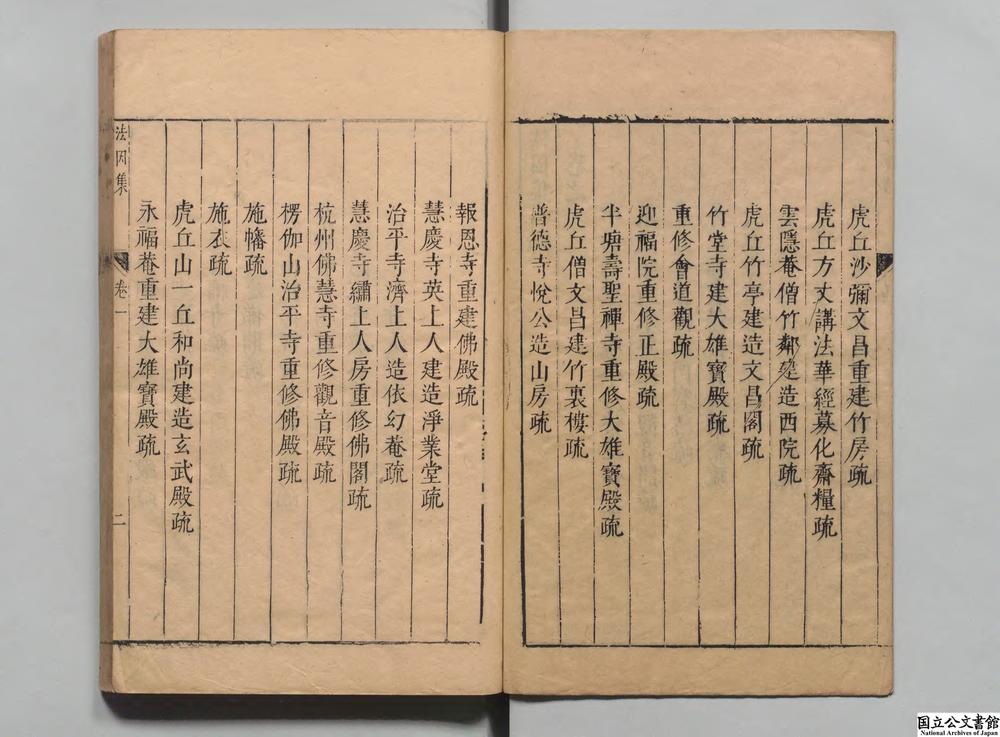 虎丘沙彌文昌重建竹房疏
虎丘方丈講法華經募化齋糧疏
雲隱菴僧竹鄰建造西院疏
虎丘竹亭建造文昌閣疏
竹堂寺建大雄寶殿疏
重修會道觀疏
迎福院重修正殿疏
半塘壽聖禪寺重修大雄寶殿疏
虎丘僧文昌建竹裏樓疏
普德寺悅公造山房疏
報恩寺重建佛殿疏
慧慶寺英上人建造淨業堂疏
治平寺濟上人造依幻菴疏
慧慶寺繡上人房重修佛閣疏
杭州佛慧寺重修觀音殿疏
楞伽山治平寺重修佛殿疏
施幡疏
施衣疏
虎丘山一丘和尚建造玄武殿疏
永福菴重建大雄寶殿疏
法因集
卷一
二
国立公文書館
National Archives of Japan